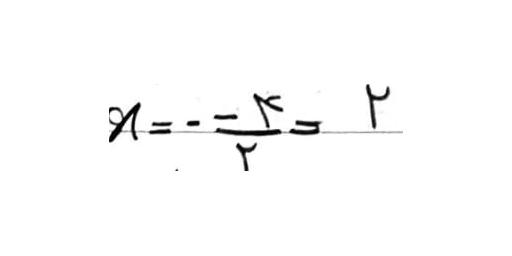 x = - \frac{-۴}{۲} = ۲